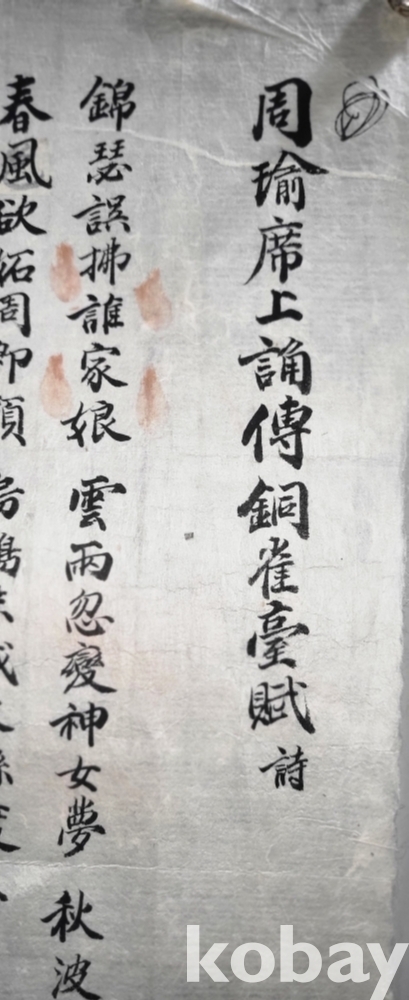 周瑜席上誦傳銅雀臺賦 詩
錦瑟誤拂誰家娘 雲雨忽變神女夢 秋波
春風欲 周郎
kobay